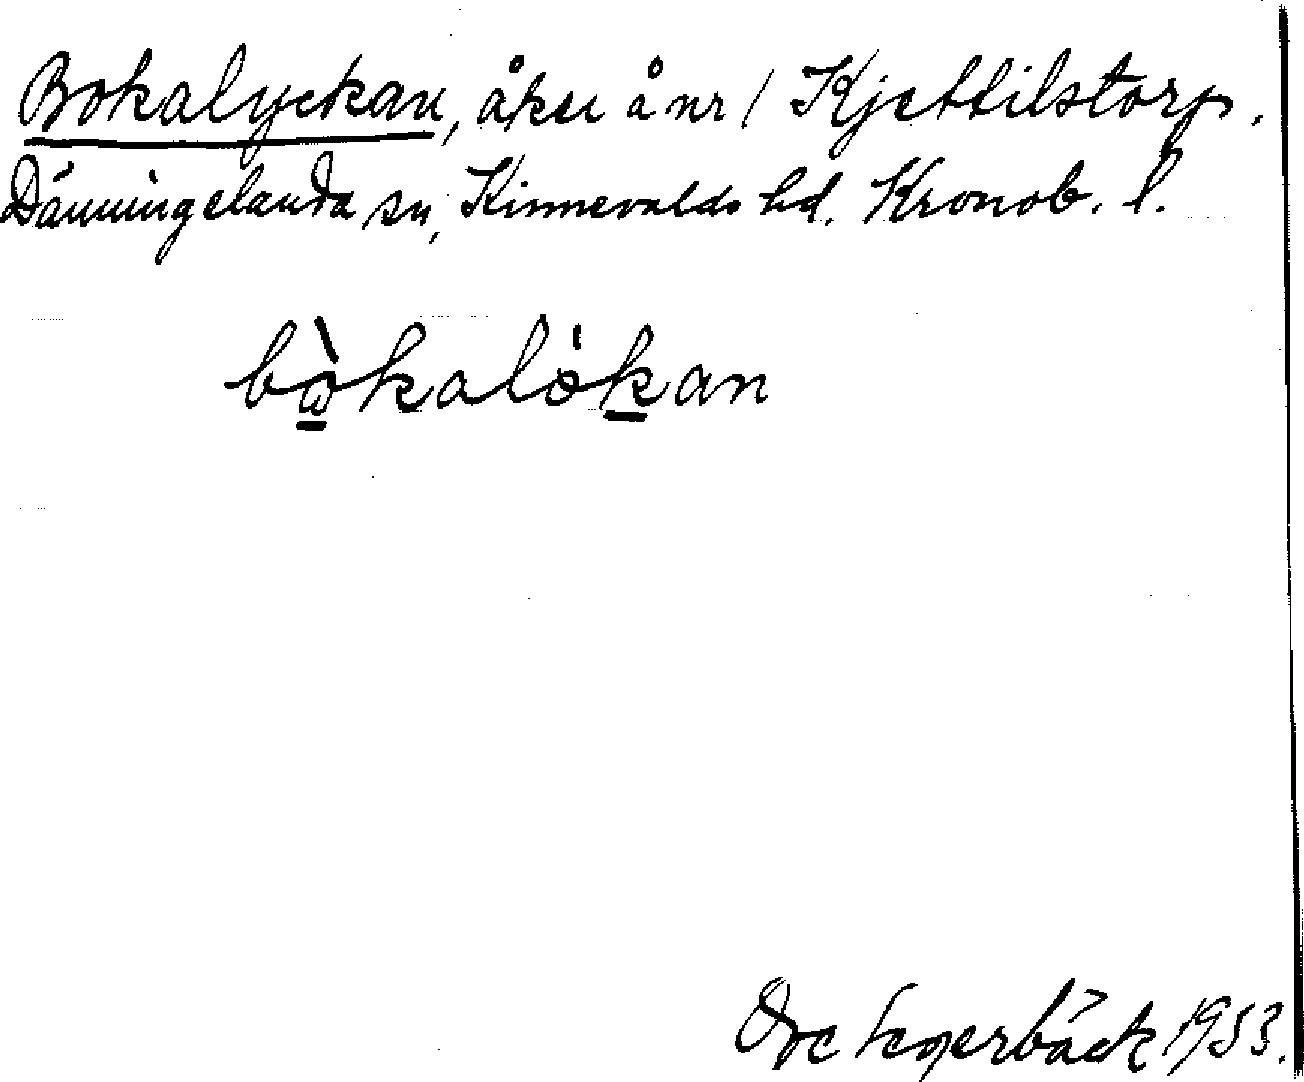 Bokalyckan, åker å nr 1 Kjettilstorp.
Dänningelanda sn, Kinnevalds hd. Kronob. l.
bòkalökan
Ove Segerbäck 1953.